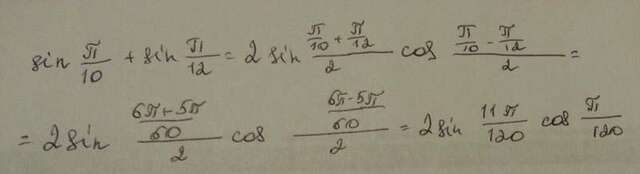 sin π/10 + sin π/12 = 2 sin (π/10 + π/12)/2 cos (π/10 - π/12)/2 =
= 2 sin ((6π+5π)/60)/2 cos ((6π-5π)/60)/2 = 2 sin 11π/120 cos π/120